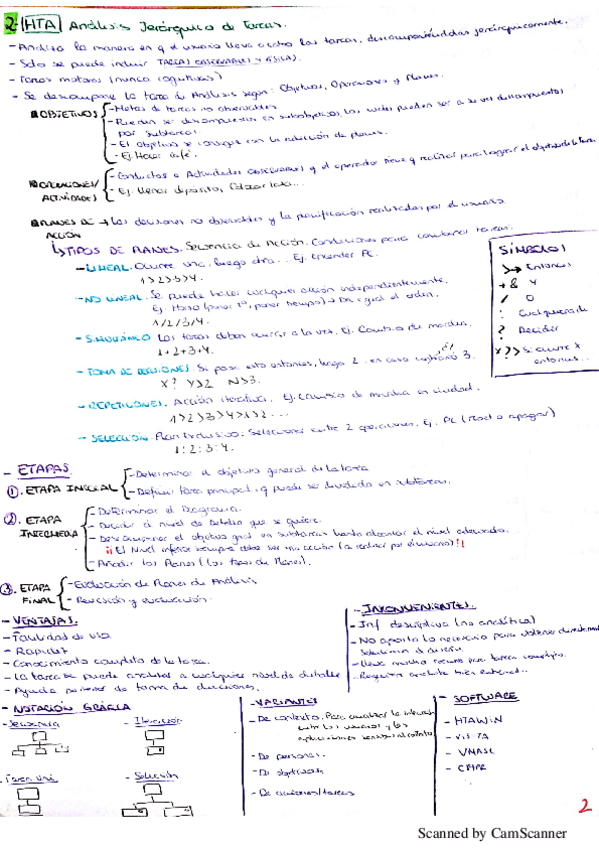 2. HTA Análisis Jerárquico de Tareas.
- Analiza la manera en q el usuario lleva a cabo las tareas, descomponiéndolas jerárquicamente.
- Solo se puede incluir TAREAS OBSERVABLES Y FÍSICAS.
- Tareas motoras (nunca cognitivas)
- Se descompone la tarea de Análisis según: Objetivos, Operaciones y Planes.
OBJETIVOS - Metas de tareas no observables
- Pueden ser descompuestos en subobjetivos, los cuales pueden ser a su vez descompuestos
por subtareas.
- El objetivo se consigue con la de planes.
- Ej. Hacer café.
OPERACIONES/ ACTIVIDADES - Conductas o Actividades OBSERVABLES q el operador tiene q realizar para lograr el objetivo de la tarea.
- Ej. Llenar depósito, Colocar lata...
PLANES DE ACCIÓN → Las decisiones no observables y la planificación realizadas por el usuario
↳ TIPOS DE PLANES. Secuencia de Acción. Condiciones para combinar tareas.
- LINEAL. Ocurre una, luego otra... Ej. Encender PC.
1>2>3>4.
- NO LINEAL. Se puede hacer cualquier acción independientemente.
Ej. Horno (poner 1º, poner tiempo) → Da igual el orden.
1/2/3/4.
- SIMULTÁNEO Las tareas deben ocurrir a la vez. Ej. Cambio de marchas.
1+2+3+4.
- TOMA DE DECISIONES. Si pasa esto entonces, luego 2. en caso contrario 3.
X? Y>2 N>3.
- REPETICIONES. Acción iterativa. Ej. Cambios de marcha en ciudad.
1>2>3>4>1>2...
- SELECCIÓN. Plan Exclusivo. Seleccionar entre 2 operaciones. Ej. PC (reset o apagar)
1:2:3:4.
SÍMBOLOS
> → Entonces
+ & Y
/ O
: Cualquiera de
? Decidir
X?>> Si ocurre X
entonces...
- ETAPAS.
①. ETAPA INICIAL - Determinar el objetivo general de la tarea
- Definir tarea principal, q puede ser dividida en subtareas.
②. ETAPA INTERMEDIA - Determinar el Diagrama.
- Decidir el nivel de Detalle que se quiere.
- Descomponer el objetivo gral en subtareas hasta alcanzar el nivel adecuado.
¡¡El Nivel inferior siempre debe ser una acción (a realizar por el usuario)!!
- Añadir los Planes (Los tipos de Planes).
③. ETAPA FINAL - Evaluación de Planes de Análisis
- Revisión y evaluación.
- VENTAJAS.
- Facilidad de uso
- Rapidez
- Conocimiento completo de la tarea.
- La tarea se puede analizar a cualquier nivel de detalle
- Ayuda de toma de decisiones.
- INCONVENIENTES.
- Inf descriptiva (no analítica)
- NO aporta lo necesario para
de diseño.
- Lleva mucho para tareas complejas.
- Requiere analista bien entrenado..
- NOTACIÓN GRÁFICA
- Secuencia
- Iteración
- Tarea Uni
- Selección
- VARIANTES
- De contexto. Para analizar la interacción
entre los usuarios y las
aplicaciones
- De personas.
- De objetivos
- De acciones/tareas
- SOFTWARE
- HTAWIN
- VISTA
2
Scanned by CamScanner